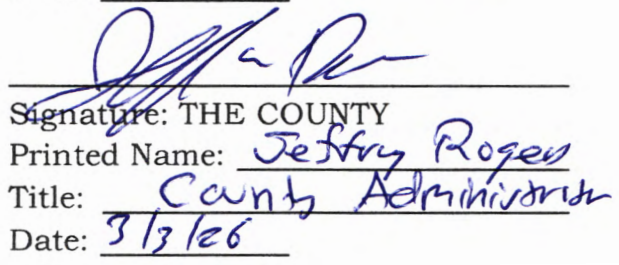 Signature: THE COUNTY
Printed Name: Jeffry Rogers
Title: County Administrator
Date: 3/3/26